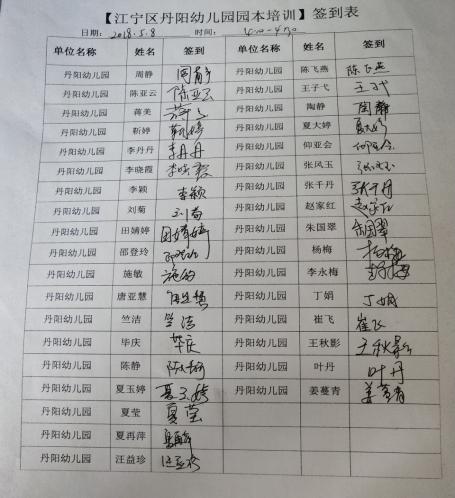 【江宁区丹阳幼儿园园本培训】签到表
日期：2018.5.8 时间：4:00-4:30
单位名称 姓名 签到 单位名称 姓名 签到
丹阳幼儿园 周静 周静 丹阳幼儿园 陈飞燕 陈飞燕
丹阳幼儿园 陈亚云 陈亚云 丹阳幼儿园 王子弋 王子弋
丹阳幼儿园 蒋美 丹阳幼儿园 陶静 陶静
丹阳幼儿园 靳婷 靳婷 丹阳幼儿园 夏大婷 夏大婷
丹阳幼儿园 李丹丹 李丹丹 丹阳幼儿园 仰亚会 仰亚会
丹阳幼儿园 李晓霞 李晓霞 丹阳幼儿园 张风玉 张风玉
丹阳幼儿园 李颖 李颖 丹阳幼儿园 张千丹 张千丹
丹阳幼儿园 刘菊 刘菊 丹阳幼儿园 赵家红 赵家红
丹阳幼儿园 田婧婷 田婧婷 丹阳幼儿园 朱国翠 朱国翠
丹阳幼儿园 邵登玲 丹阳幼儿园 杨梅 杨梅
丹阳幼儿园 施敏 施敏 丹阳幼儿园 李永梅
丹阳幼儿园 唐亚慧 唐亚慧 丹阳幼儿园 丁娟 丁娟
丹阳幼儿园 竺洁 竺洁 丹阳幼儿园 崔飞 崔飞
丹阳幼儿园 毕庆 毕庆 丹阳幼儿园 王秋影 王秋影
丹阳幼儿园 陈静 陈静 丹阳幼儿园 叶丹 叶丹
丹阳幼儿园 夏玉婷 夏玉婷 丹阳幼儿园 姜蔓青 姜蔓青
丹阳幼儿园 夏莹 夏莹
丹阳幼儿园 夏再萍
丹阳幼儿园 汪益珍 汪益珍